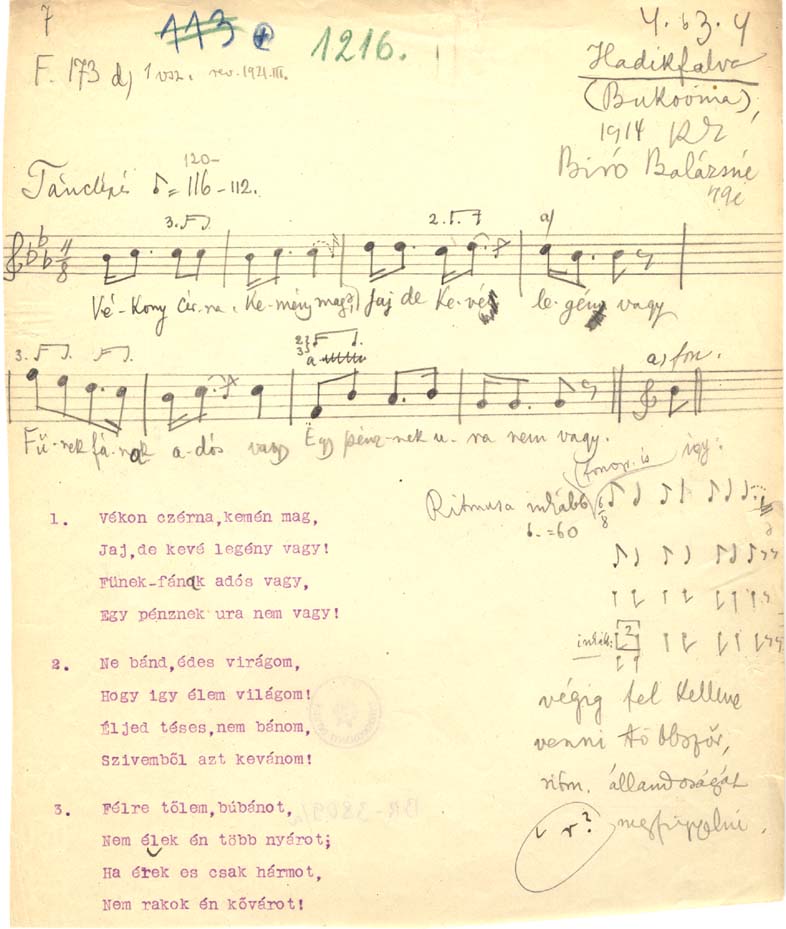 7
113
1216.
4. 63. 4
F. 173 d) 1 vsz. rev. 1921. III.
Hadikfalva
(Bukovina),
1914
Biró Balázsné
79é
120-
Tánclépés ♪= 116-112.
3.
2.
a)
4/8
Vé-kony cér-na, Ke-mény mag, Jaj de Ke-vés le-gény vagy
3.
2}
3}
a
a) fon.
Fü-nek fá-nak a-dós vagy Egy pénz-nek u-ra nem vagy.
(fonogr. is
így:
Ritmusa inkább 6/8
=60
1. Vékon czérna,kemén mag,
Jaj,de kevé legény vagy!
Fünek-fának adós vagy,
Egy pénznek ura nem vagy!
inkább:
2
2. Ne bánd,édes virágom,
Hogy igy élem világom!
Éljed téses,nem bánom,
Szivemből azt kevánom!
végig fel kellene
venni többször,
ritm. állandóságát
megfigyelni.
r?
3. Félre tőlem,búbánot,
Nem élek én több nyárot;
Ha érek es csak hármot,
Nem rakok én kővárot!